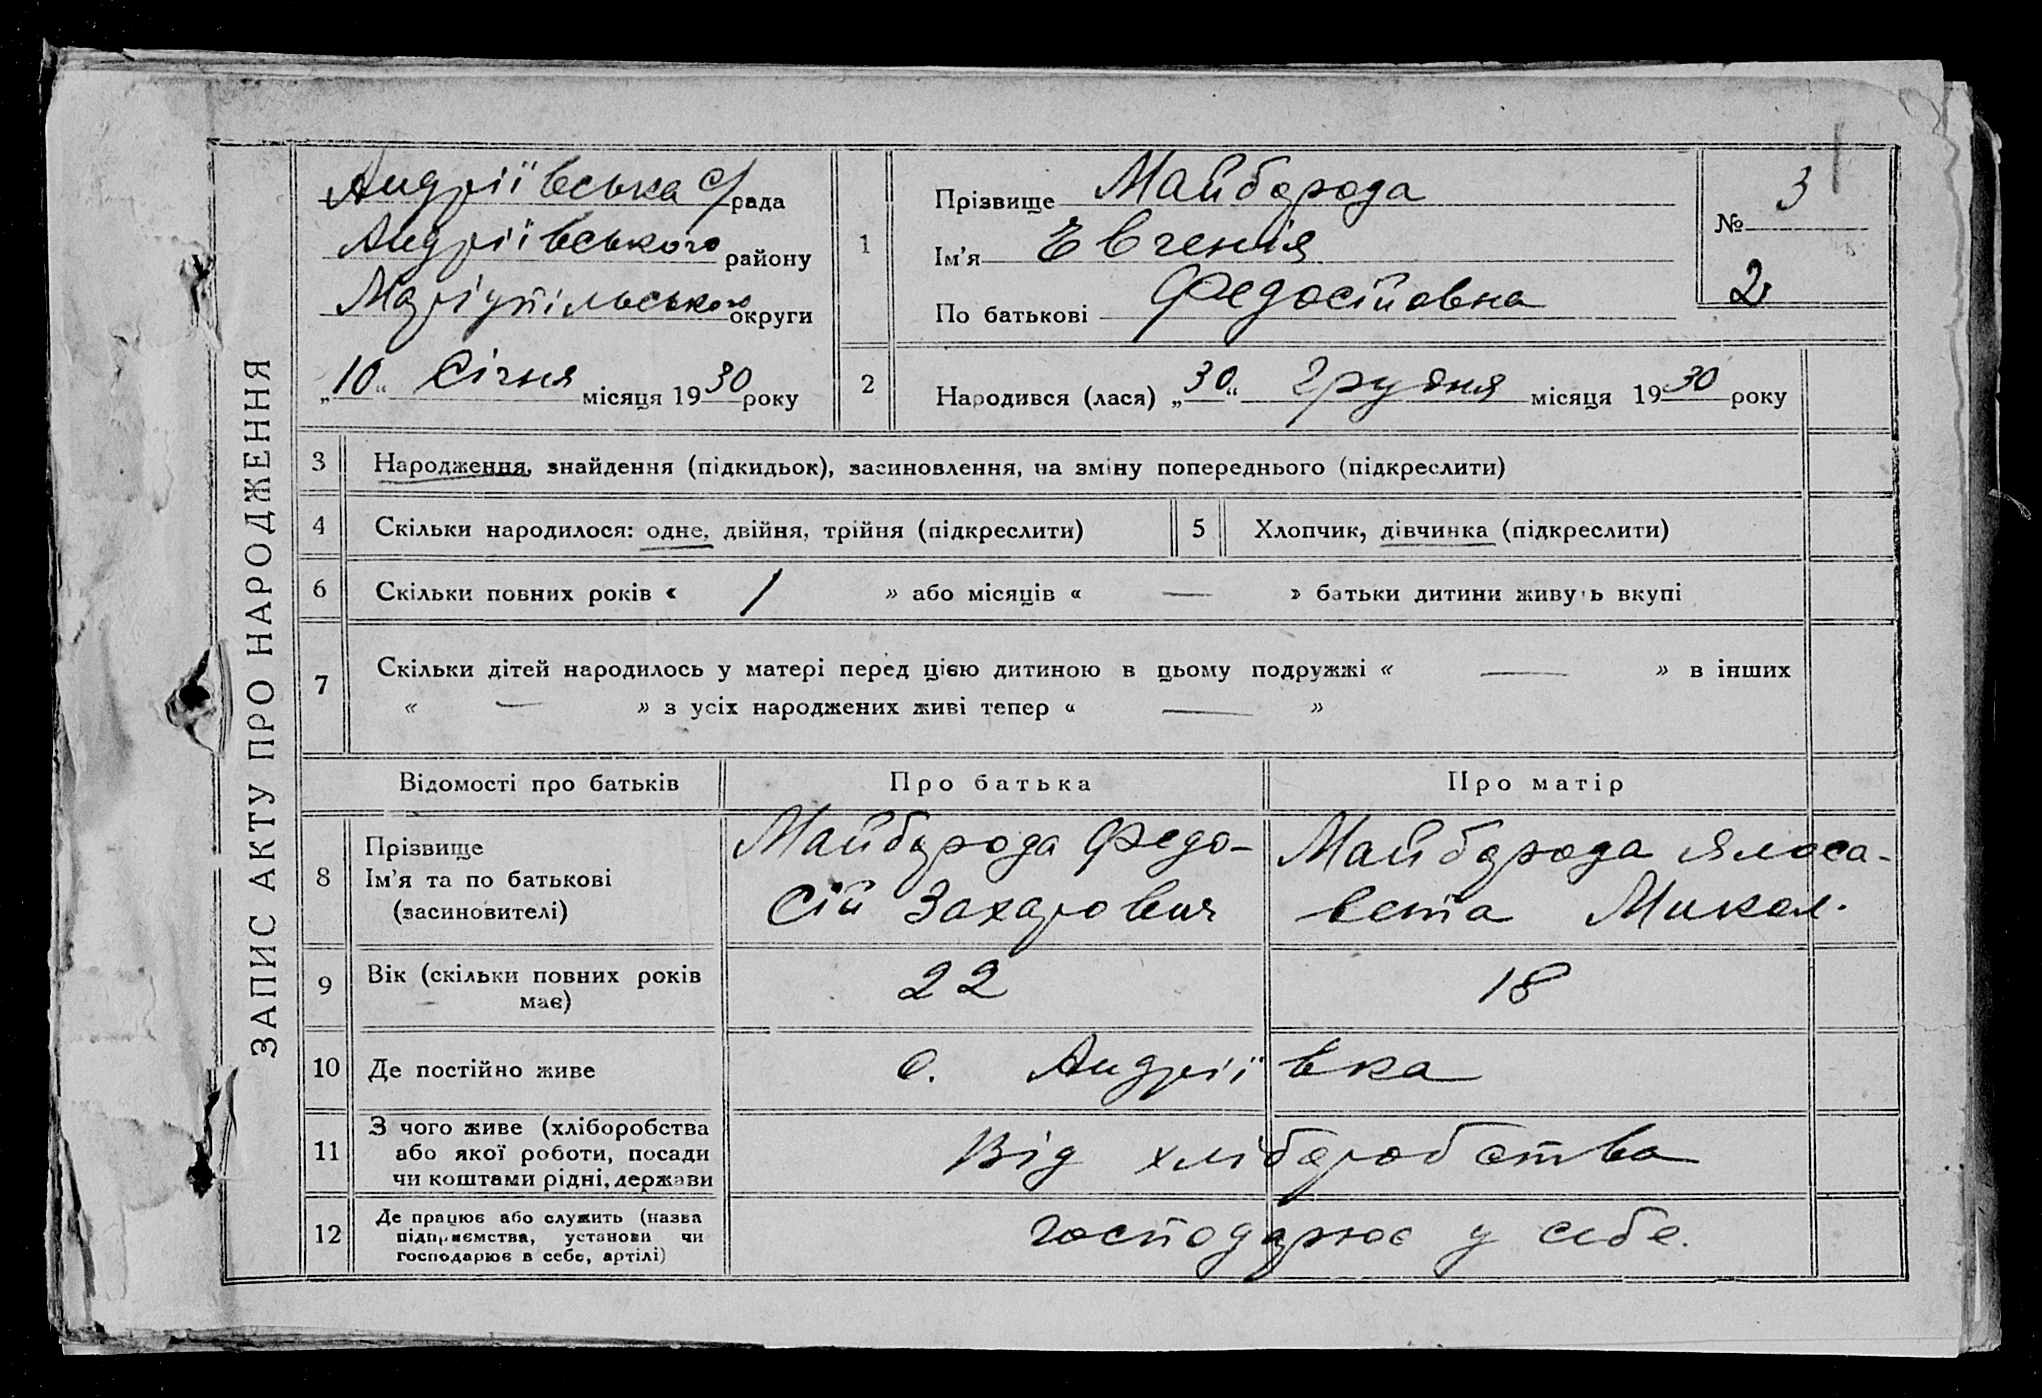 ЗАПИС АКТУ ПРО НАРОДЖЕННЯ
Андріївська с/рада
Андріївського району
Маріупільського округи
„10“ Січня місяця 1930 року
1
Прізвище Майборода
Ім'я Евгенія
По батькові Федосійовна
№ 3
2
2
Народився (лася) „30“ Грудня місяця 1930 року
3 Народження, знайдення (підкидьок), засиновлення, на зміну попереднього (підкреслити)
4 Скільки народилося: одне, двійня, трійня (підкреслити)
5 Хлопчик, дівчинка (підкреслити)
6 Скільки повних років « 1 » або місяців « — » батьки дитини живуть вкупі
7 Скільки дітей народилось у матері перед цією дитиною в цьому подружжі « — » в інших
« — » з усіх народжених живі тепер « — »
Відомості про батьків
Про батька
Про матір
8
Прізвище
Ім'я та по батькові
(засиновителі)
Майборода Федо-
сій Захарович
Майборода Ялоса-
вета Микол.
9
Вік (скільки повних років
має)
22
18
10 Де постійно живе
с. Андріївка
11
З чого живе (хліборобства
або якої роботи, посади
чи коштами рідні, держави
Від хліборобства
12
Де працює або служить (назва
підприємства, установи чи
господарює в себе, артілі)
господарює у себе.